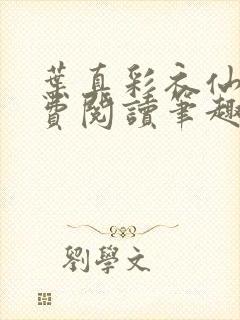 葉真彩衣仙
費閱讀筆趣
劉學文